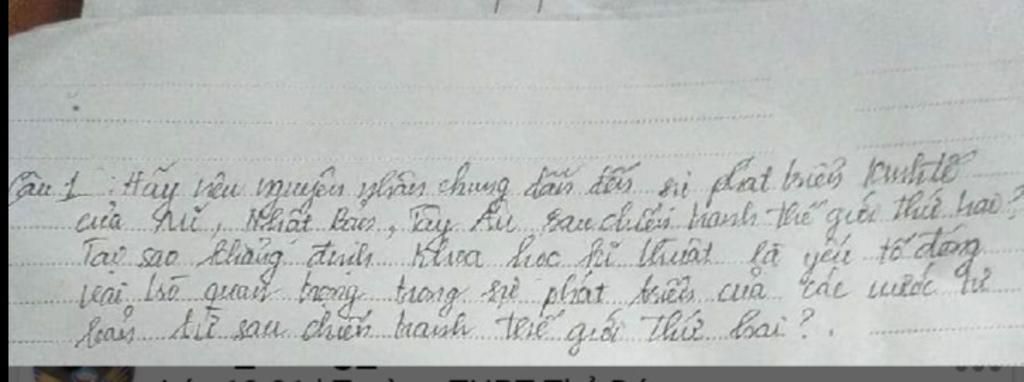 Câu 1 : Hãy nêu nguyên nhân chung dẫn đến sự phát triển kinh tế
của Mĩ, Nhật Bản, Tây Âu sau chiến tranh thế giới thứ hai?
Tại sao khẳng định khoa học kĩ thuật là yếu tố đóng
vai trò quan trọng trong sự phát triển của các nước tư
bản từ sau chiến tranh thế giới thứ hai?.